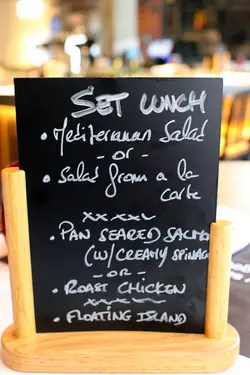 SET LUNCH
• Mediterranean Salad
- or -
• Salad from a la
carte
xxxxx
• PAN SEARED SALMO
(W/CREAMY SPINAC
- OR -
• ROAST CHICKEN
xxxxx
• FLOATING ISLAND